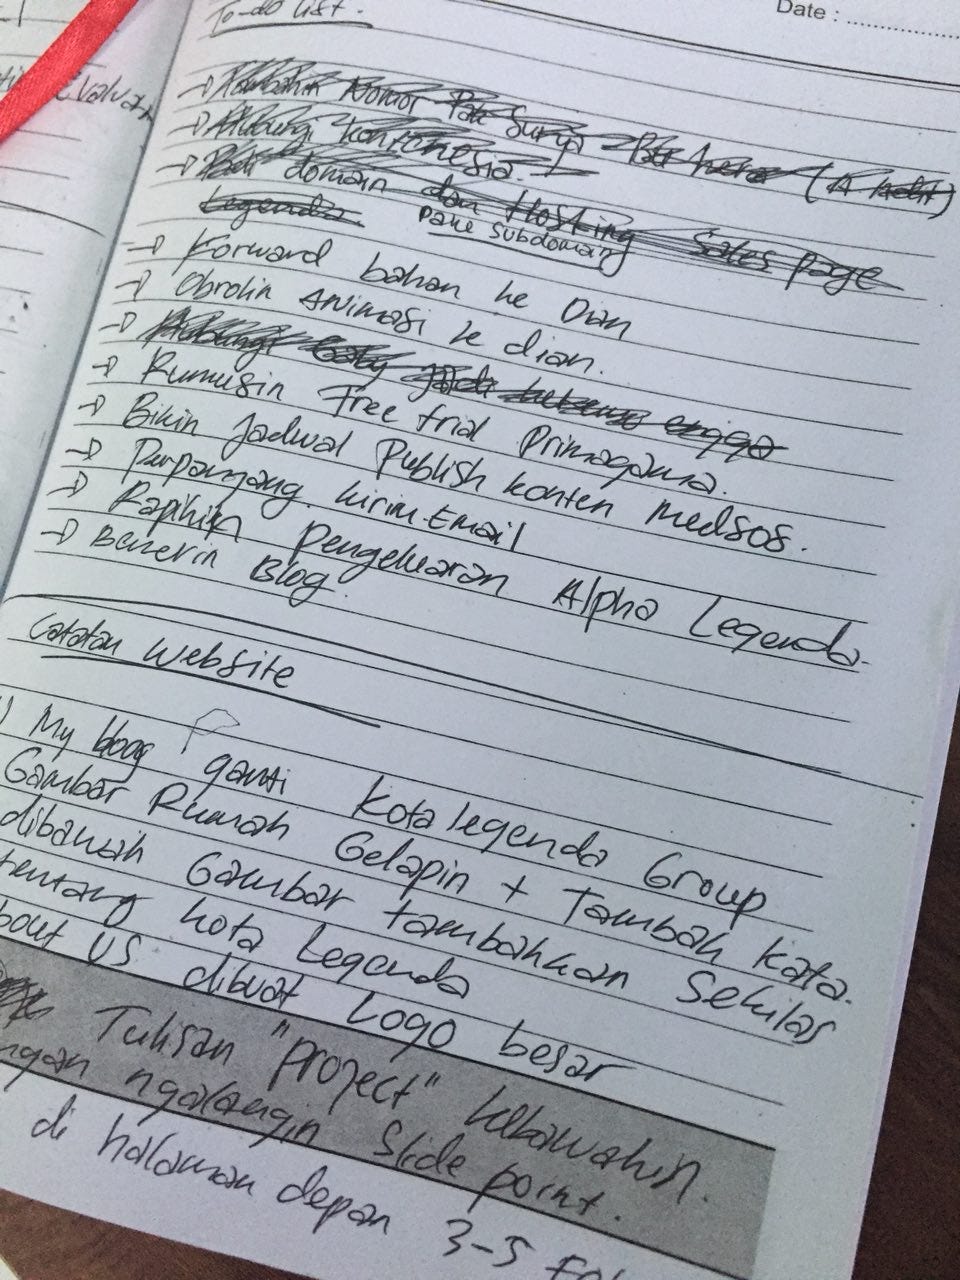 Date :
To-do list.
Evaluas
→ Nomor Pak Surya
→ Hubungi kontenesia.
→ Beli domain dan Hosting Sales page
Legenda
Pake subdomain
→ Forward bahan ke Dian
→ Obrolin Animasi ke dian.
→ Hubungi
→ Rumusin Free trial Primagama.
→ Bikin Jadwal Publish konten medsos.
→ Perpanjang kirim.Email
→ Rapihin Pengeluaran Alpha Legenda.
→ Benerin Blog.
Catatan Website
My blog ganti Kota legenda Group
Gambar Rumah Gelapin + Tambah kata.
dibawah Gambar tambahkan Sekilas
tentang kota Legenda
bout US dibuat Logo besar
Tulisan "project" kebawahin.
ngan ngalangin Slide point.
di halaman depan 3-5